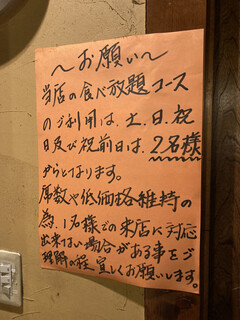 ～お願い～
当店の食べ放題コース
のご利用は、土、日、祝
日及び祝前日は、2名様
からとなります。
席数や低価格維持の
為、1名様での来店に対応
出来ない場合がある事をご
理解の程、宜しくお願いします。